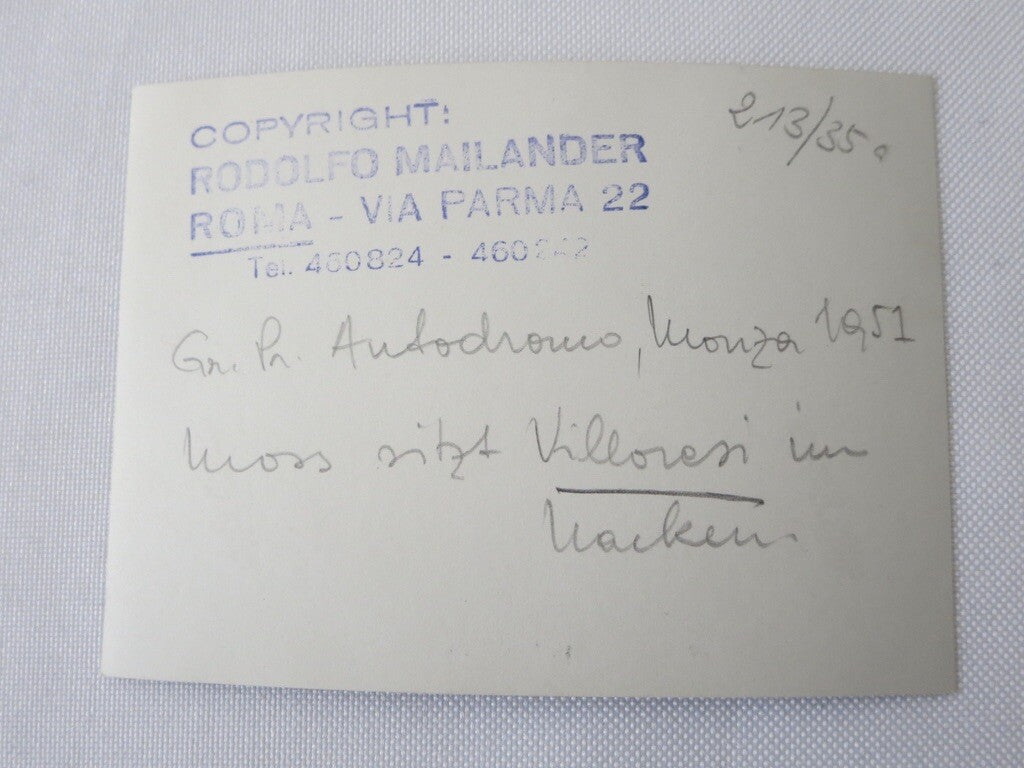 COPYRIGHT:
RODOLFO MAILANDER
ROMA - VIA PARMA 22
Tel. 460824 - 460242
213/35.
Gr. Pr. Autodromo, Monza 1951
Moss sitzt Villoresi im
Nacken.